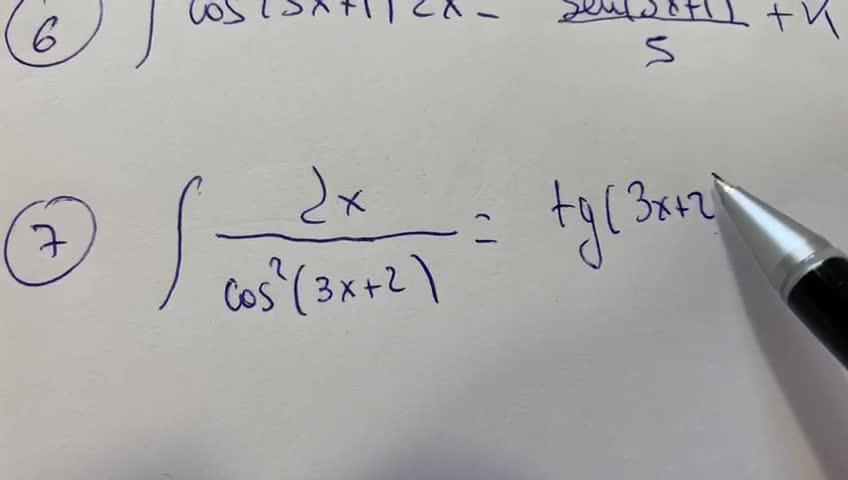 6 ∫ cos(5x+1) 2x = sen(5x+1)/5 + K
7 ∫ 2x/cos²(3x+2) = tg(3x+2